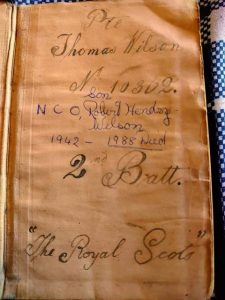 Pte
Thomas Wilson
No 10302.
Son
N C O, Robert Hendry
Wilson
1942 - 1988 Died
2nd Batt.
"The Royal Scots"